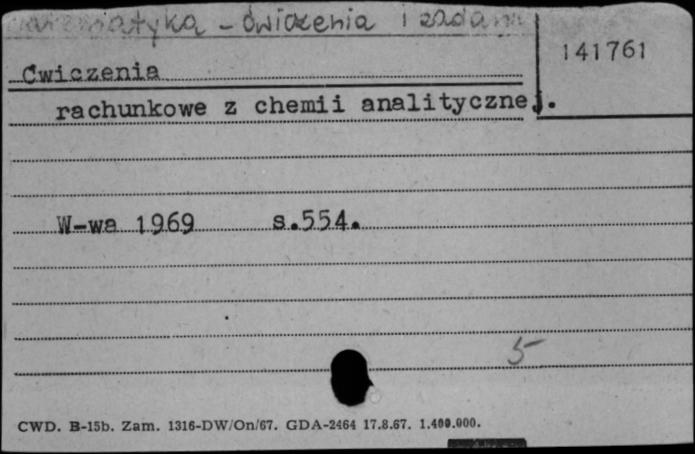 matematyka - ćwiczenia i zadania
141761
Ćwiczenia
rachunkowe z chemii analitycznej.
W-wa 1969 s.554.
5
CWD. B-15b. Zam. 1316-DW/On/67. GDA-2464 17.8.67. 1.400.000.